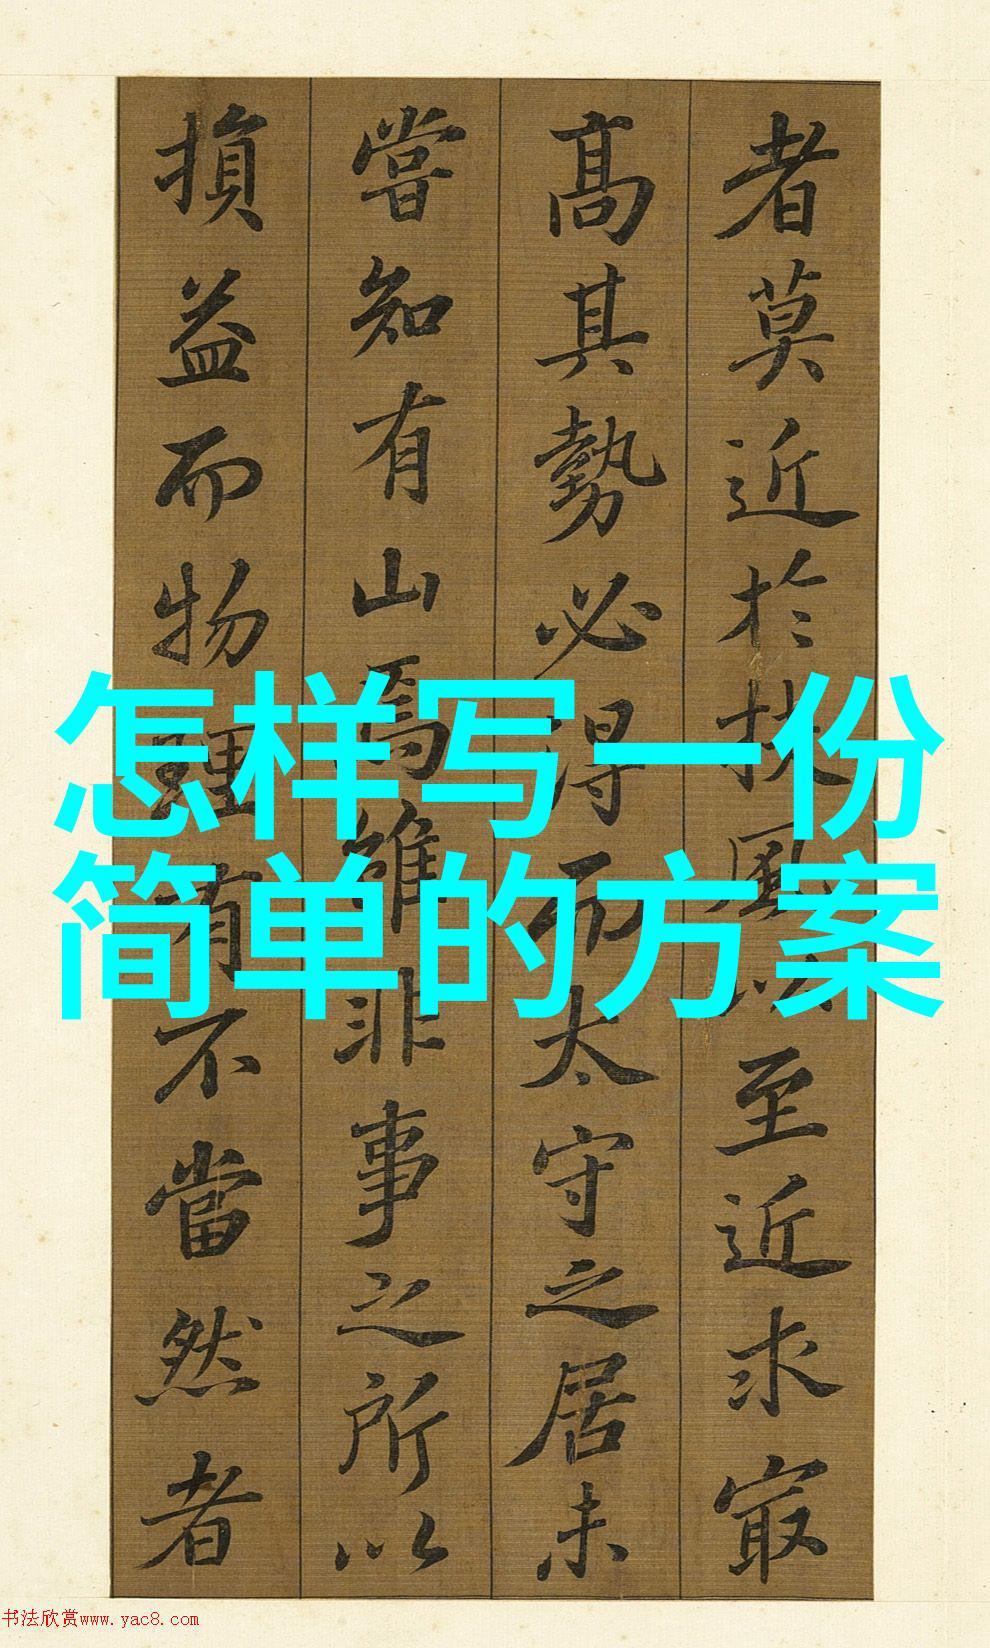 怎样写一份
简单的方案
者莫近於扶風以至近求冣
高其勢必得而太守之居未
嘗知有山焉雖非事之所以
損益而物理有不當然者
书法欣赏www.yac8.com